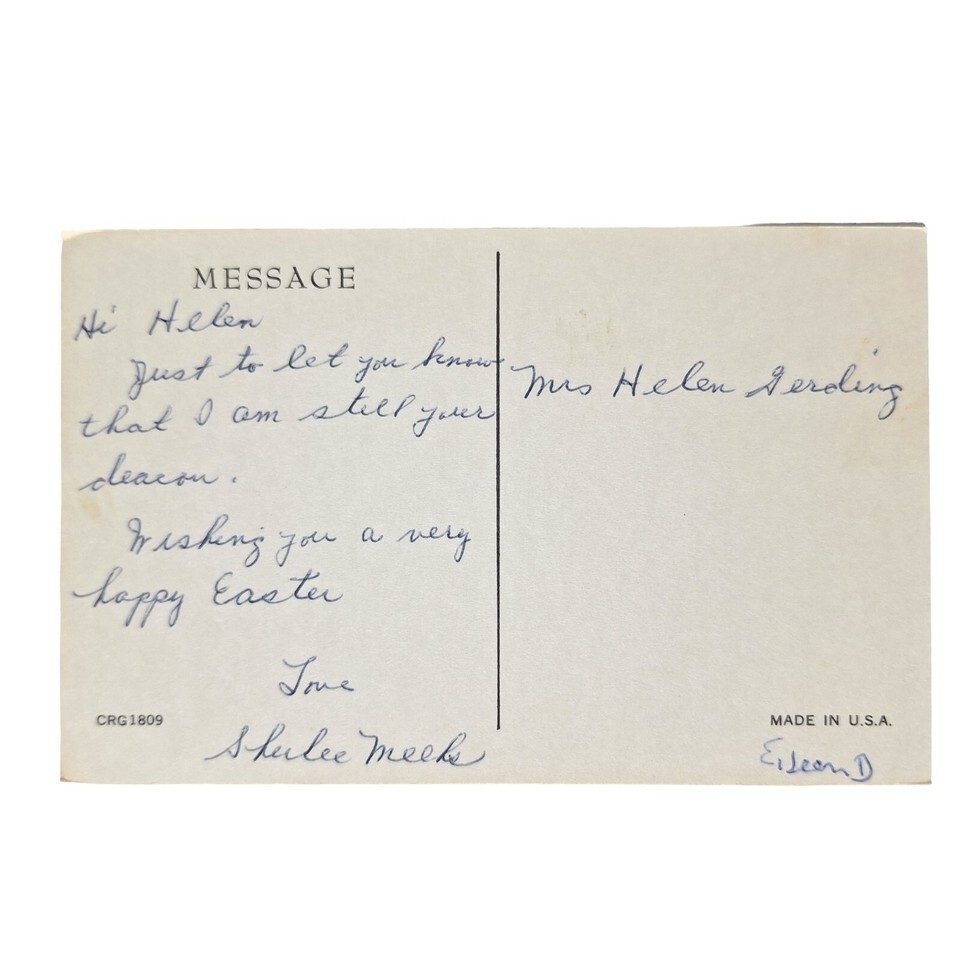 MESSAGE
Hi Helen
Just to let you know
that I am still your
deacon.
Wishing you a very
happy Easter
Love
Meeks
CRG1809
Mrs Helen Gerding
MADE IN U.S.A.
Eileen D